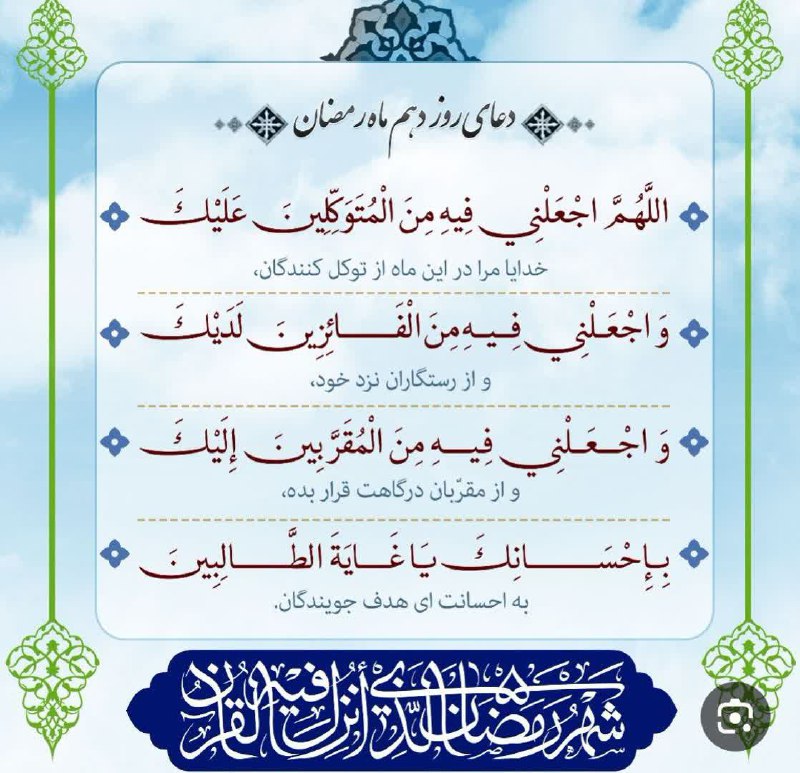 دعای روز دهم ماه رمضان
اللَّهُمَّ اجْعَلْنِي فِيهِ مِنَ الْمُتَوَكِّلِينَ عَلَيْكَ
خدایا مرا در این ماه از توکل کنندگان،
وَ اجْعَلْنِي فِيهِ مِنَ الْفَائِزِينَ لَدَيْكَ
و از رستگاران نزد خود،
وَ اجْعَلْنِي فِيهِ مِنَ الْمُقَرَّبِينَ إِلَيْكَ
و از مقرّبان درگاهت قرار بده،
بِإِحْسَانِكَ يَا غَايَةَ الطَّالِبِينَ
به احسانت ای هدف جویندگان.
شَهْرُ رَمَضَانَ الَّذِي أُنزِلَ فِيهِ الْقُرْآنُ